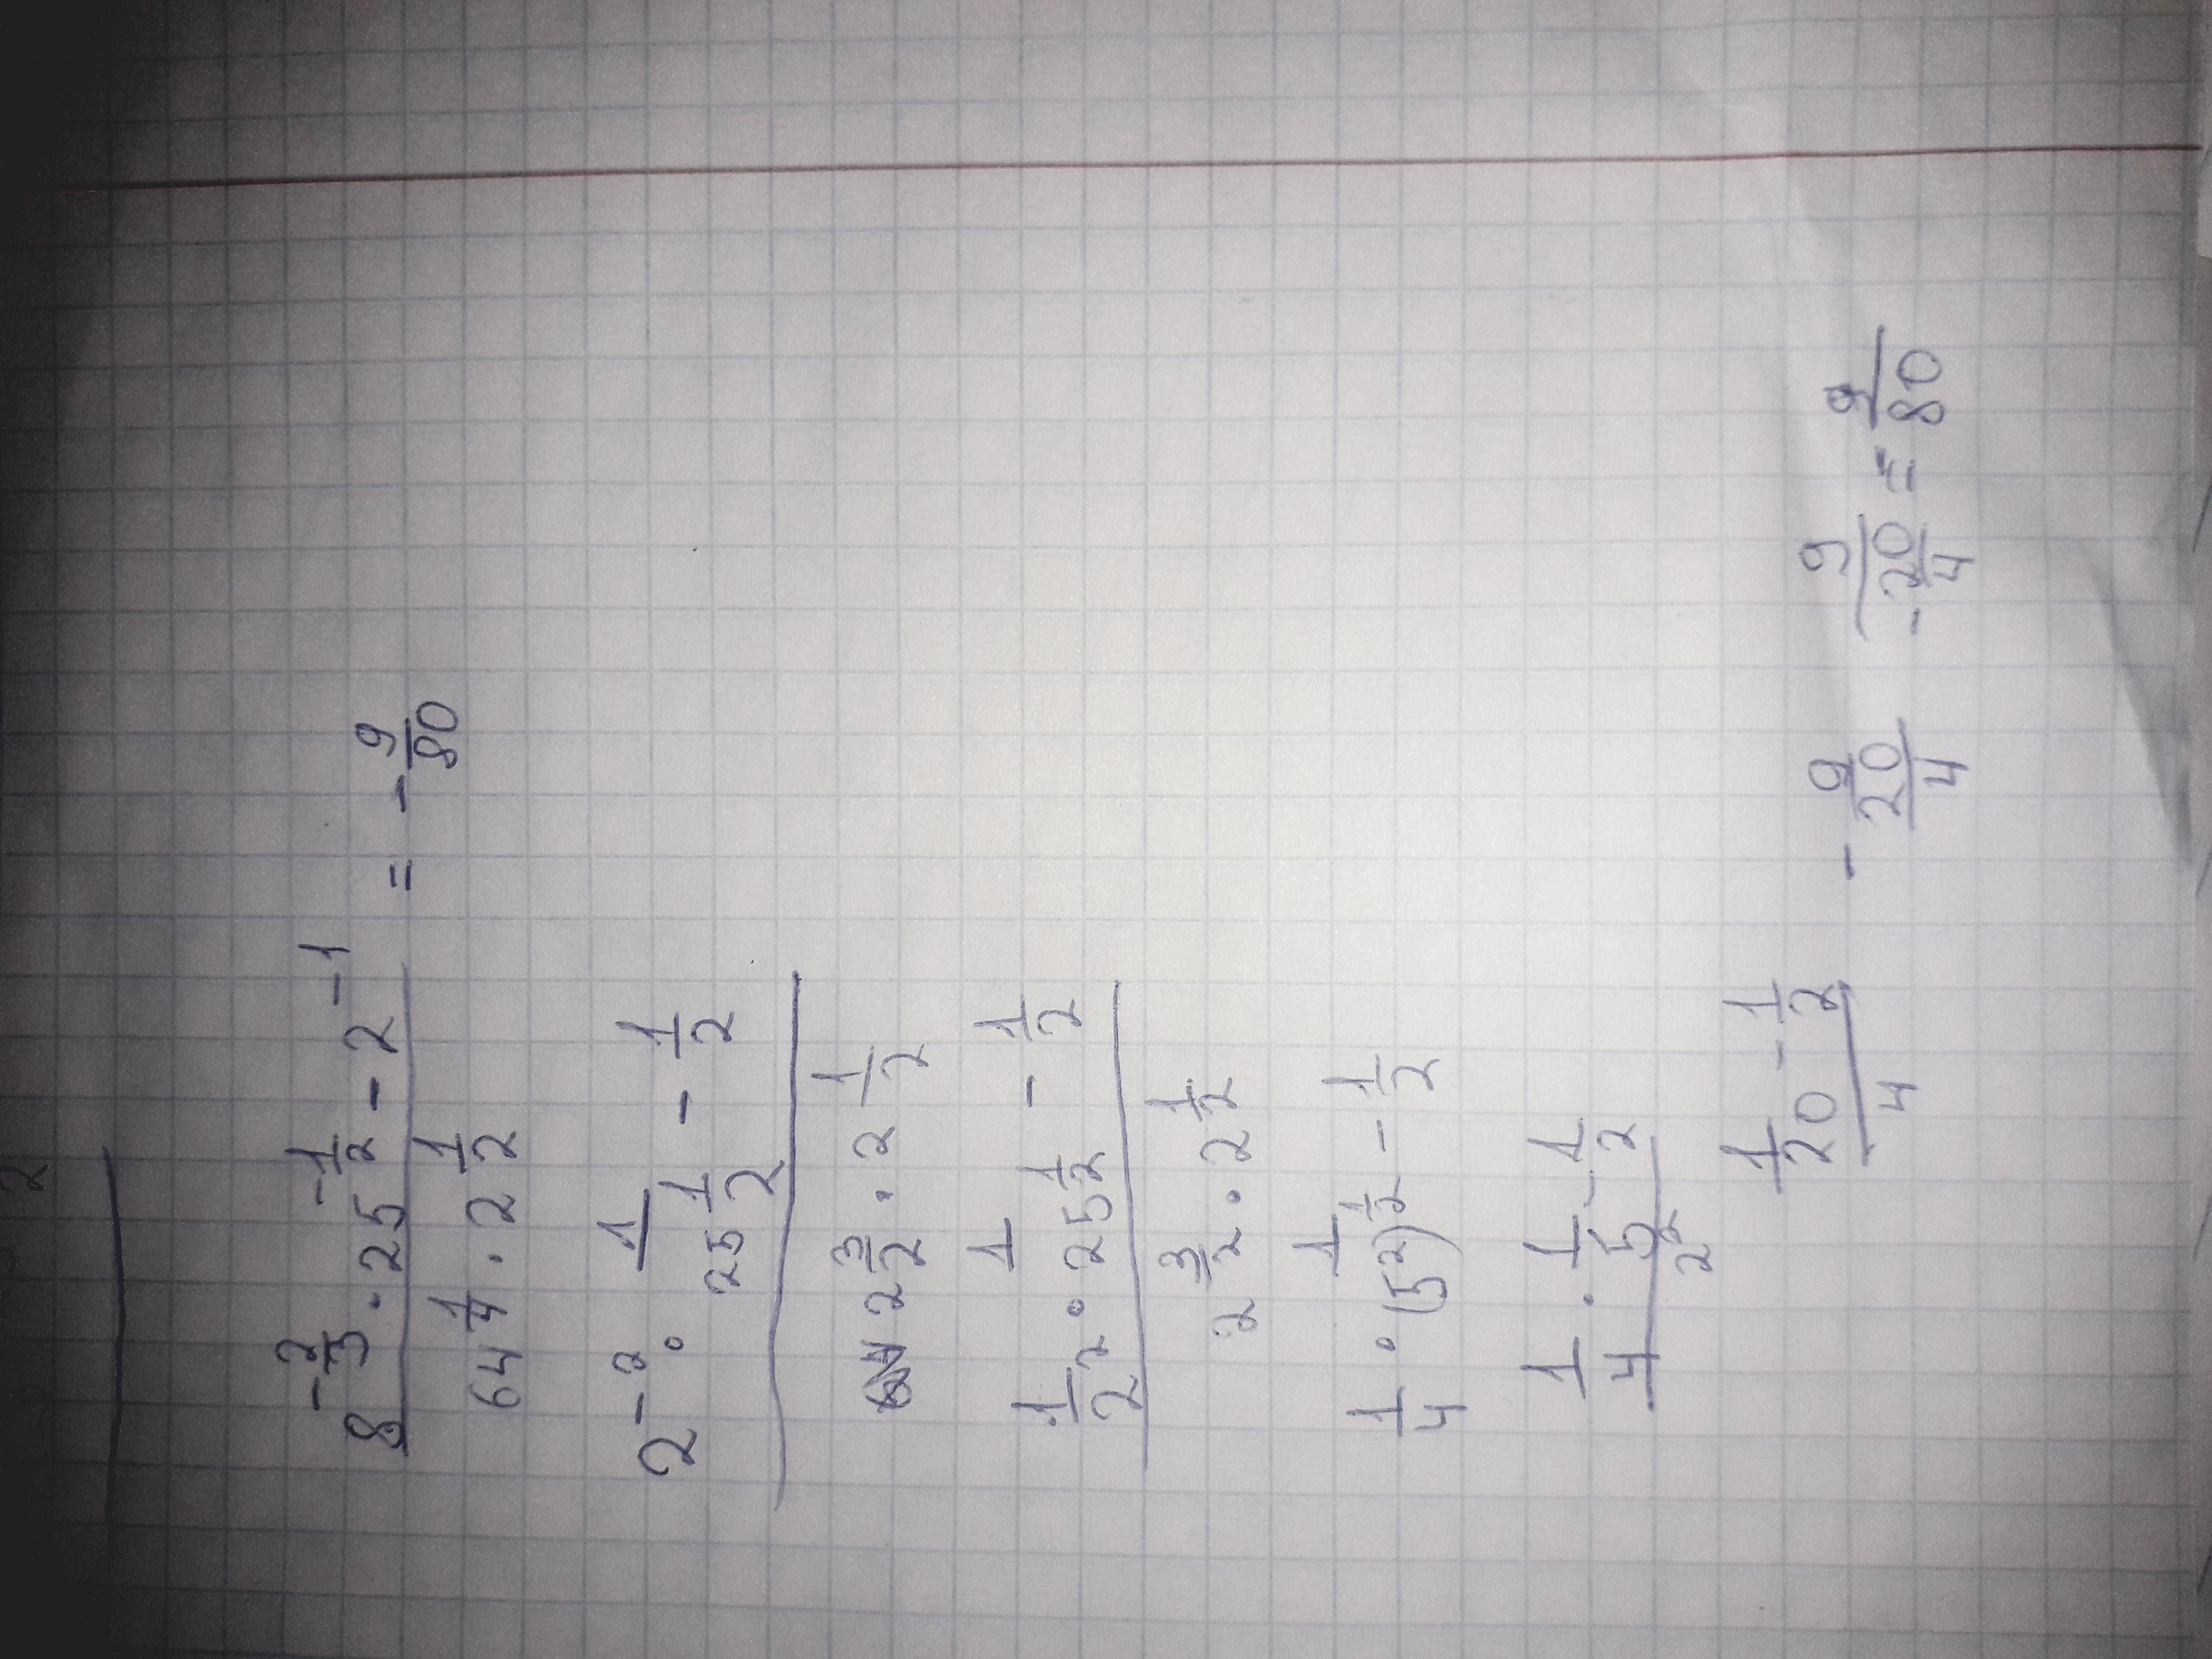 8^{-\frac{2}{3}} \cdot 25^{-\frac{1}{2}} - 2^{-1}
64^{\frac{1}{4}} \cdot 2^{\frac{1}{2}} = -\frac{9}{80}
2^{-2} \cdot \frac{1}{25^{\frac{1}{2}}} - \frac{1}{2}
2^{\frac{3}{2}} \cdot 2^{\frac{1}{2}}
\frac{1}{2}^{2} \cdot \frac{1}{25^{\frac{1}{2}}} - \frac{1}{2}
2^{\frac{3}{2}} \cdot 2^{\frac{1}{2}}
\frac{1}{4} \cdot \frac{1}{(5^2)^{\frac{1}{2}}} - \frac{1}{2}
\frac{1}{4} \cdot \frac{1}{5} - \frac{1}{2}
2^2
\frac{1}{20} - \frac{1}{2}
4
-\frac{9}{\frac{20}{4}} \frac{9}{-\frac{20}{4}} = \frac{9}{80}